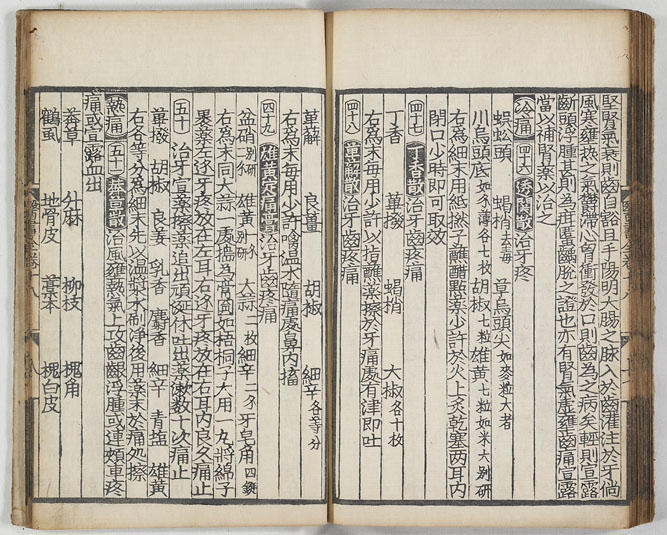 堅腎氣衰則齒自豁且手陽明大腸之脉入於齒灌注於牙倘
風寒壅熱之氣欝滯心胷衝發於口則齒為之病矣輕則宣露
齗頭浮腫甚則為疳䘌齒脫之證也亦有腎氣虛壅齒痛宣露
當以補腎藥以治之
冷痛 四十六 治牙疼
蜈蚣頭 蝎梢去毒 草烏頭尖如麥粒大者
川烏頭底如錢薄各七枚 胡椒七粒 雄黃七粒如米大别研
右為細末用紙撚子蘸醋點藥少許於火上炙乾塞两耳内
閉口少時即可取效
四十七 丁香散 治牙齒疼痛
丁香 蓽撥 蝎梢 大椒各十枚
右為末每用少許以指蘸藥擦於牙痛處有津即吐
四十八 散 治牙齒疼痛
良薑 胡椒 細辛各等分
右為末每用少許噙温水隨痛處鼻内搐
四十九 雄黃定痛膏 治牙齒疼痛
盆硝别研 雄黃别研 大蒜二枚 細辛二分 牙皂角四鋌
右為末同大蒜一處搗為膏圓如梧桐子大用一丸將綿子
裹藥左边牙疼放在左耳右边牙疼放在右耳内良久痛止
五十 治牙宣藥擦藥追出頑涎休吐出藥漱數十次痛止
蓽撥 胡椒 良姜 乳香 麝香 細辛 青塩 雄黃
右各等分為細末先以温漿水刷淨後用藥末於痛処擦
熱痛 五十一 宣散 治風壅熱氣上攻齒齗浮腫或連頰車疼
痛或宣露血出
莽草 升麻 柳枝 槐角
鶴虱 地骨皮 藁本 槐白皮